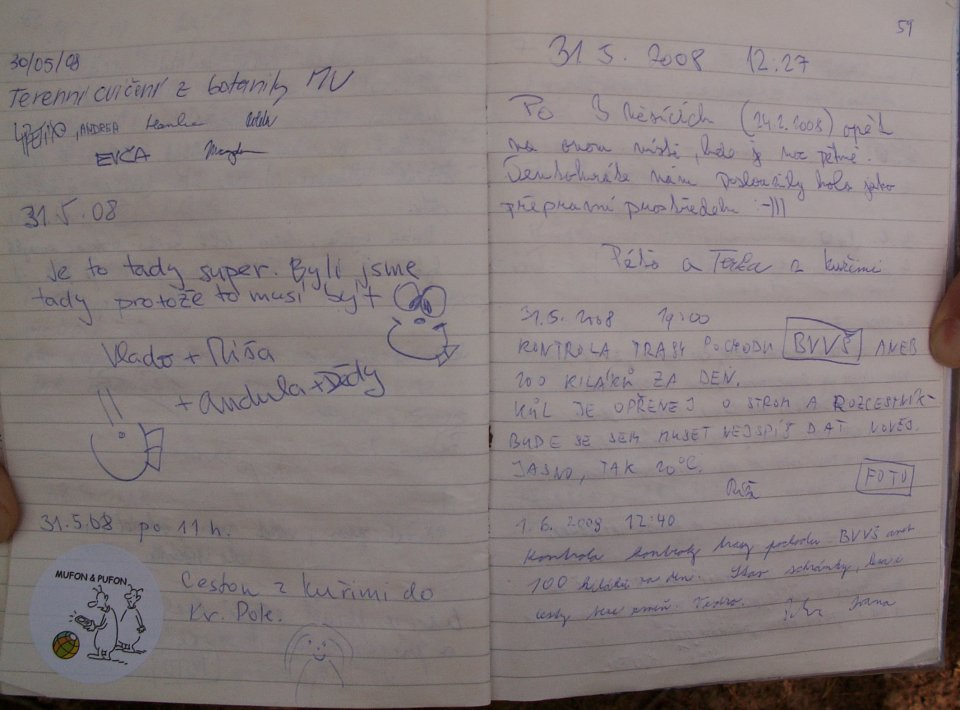 30/05/08
Terenní cvičení z botaniky MU
ANDREA Hanka
EVČA Magda
31.5.08
Je to tady super. Byli jsme
tady protože to musí být
Vlado + Míša
+ Andula + Dědy
31.5.08 po 11 h.
MUFON & PUFON
Cestou z kuřimi do
Kr. Pole.
59
31 5. 2008 12.27
Po 3 měsících (24.2.2008) opět
na onom místě, kde je moc pěkně.
Tentokráte nám posloužily kola jako
přepravní prostředek :-)))
Péťo a Terka z kuřimi
31.5. 2008 19:00
KONTROLA TRASY POCHODU BVVŠ ANEB
100 KILÁKŮ ZA DEN.
KŮL JE OPŘENEJ O STROM A ROZCESTNÍK
BUDE SE SEM MUSET NEJSPÍŠ DÁT NOVEJ.
JASNO, TAK 20°C.
FOTO
1.6. 2008 12:40
Kontrola kontroly trasy pochodu BVVŠ aneb
100 kiláků za den. Stav schránky,
cesty beze změn. Ivana